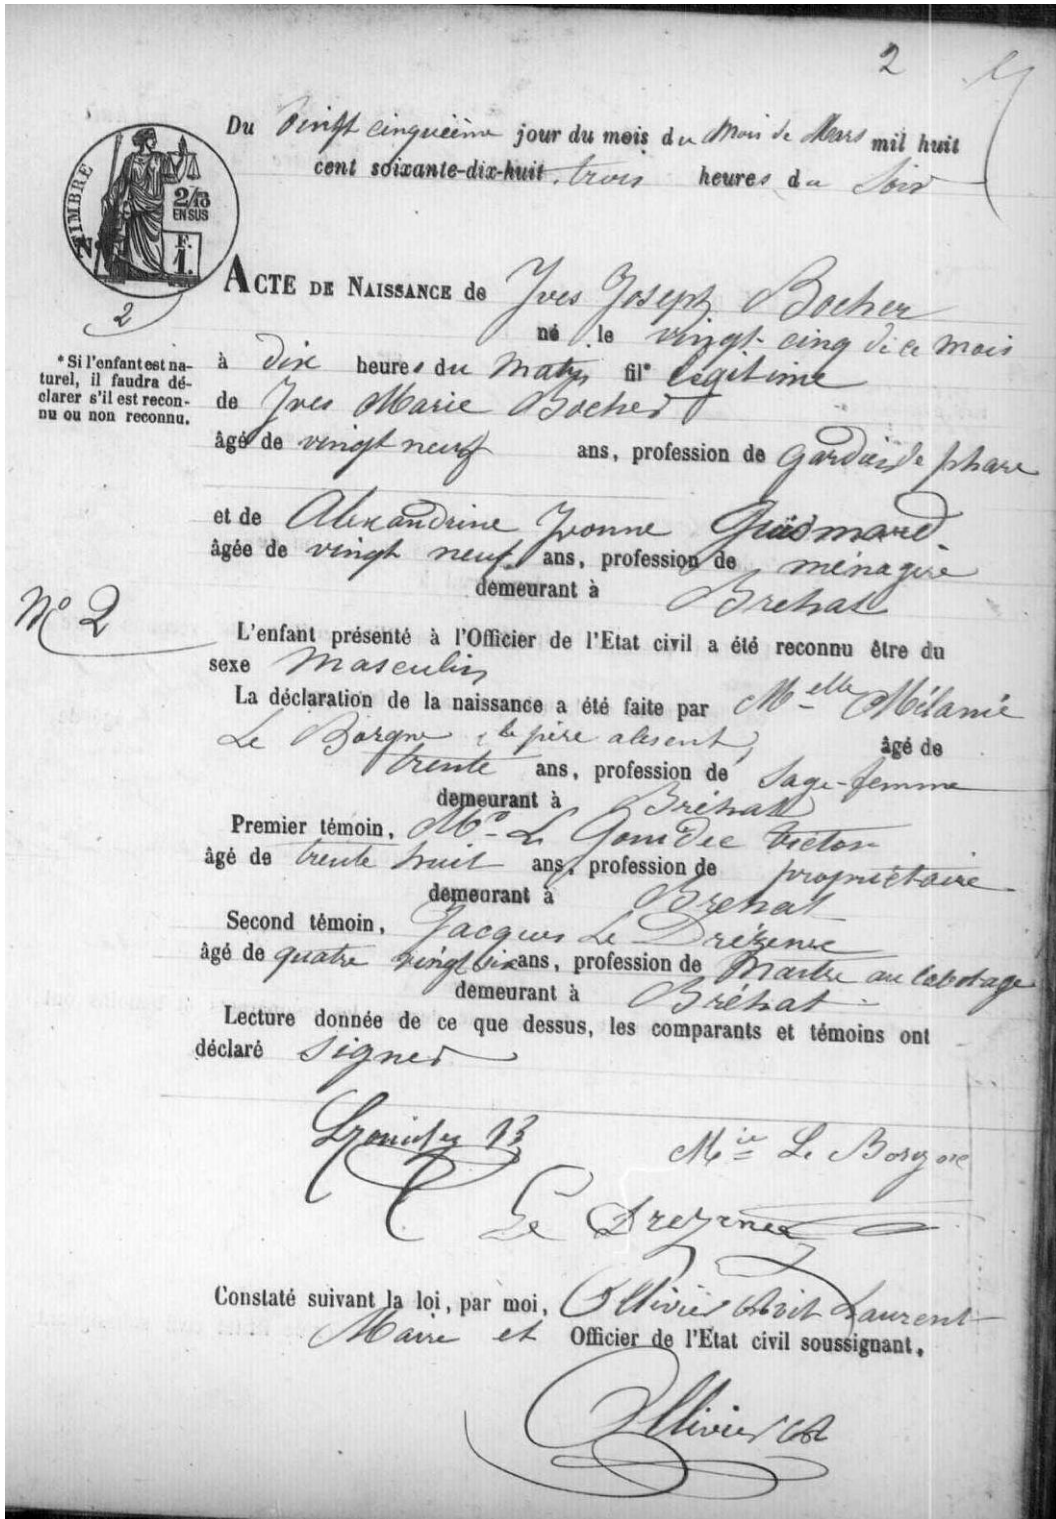 2
Du Vingt cinquième jour du mois du Mois de Mars mil huit
cent soixante-dix-huit, trois heures du Soir
TIMBRE
2/10
EN SUS
F.
1.
2
ACTE DE NAISSANCE de Yves Joseph Bocher
né le vingt-cinq de ce mois
* Si l'enfant est na-
turel, il faudra dé-
clarer s'il est recon-
nu ou non reconnu.
à dix heures du matin fils légitime
de Yves Marie Bocher
âgé de vingt neuf ans, profession de gardien de phare
et de Alexandrine Yvonne
âgée de vingt neuf ans, profession de ménagère
demeurant à Brehat
No 2
L'enfant présenté à l'Officier de l'Etat civil a été reconnu être du
sexe Masculin
La déclaration de la naissance a été faite par Melle Mélanie
Le Borgne, le père absent, âgé de
trente ans, profession de Sage-femme
demeurant à Bréhat
Premier témoin, Mr Le Gonidec Victor
âgé de trente huit ans, profession de propriétaire
demeurant à Bréhat
Second témoin, Jacques Le Drézenec
âgé de quatre vingt six ans, profession de Maitre au cabotage
demeurant à Bréhat
Lecture donnée de ce que dessus, les comparants et témoins ont
déclaré signer
Mie Le Borgne
Le Drezenec
Constaté suivant la loi, par moi, Ollivier Laurent
Maire et Officier de l'Etat civil soussignant.
Ollivier